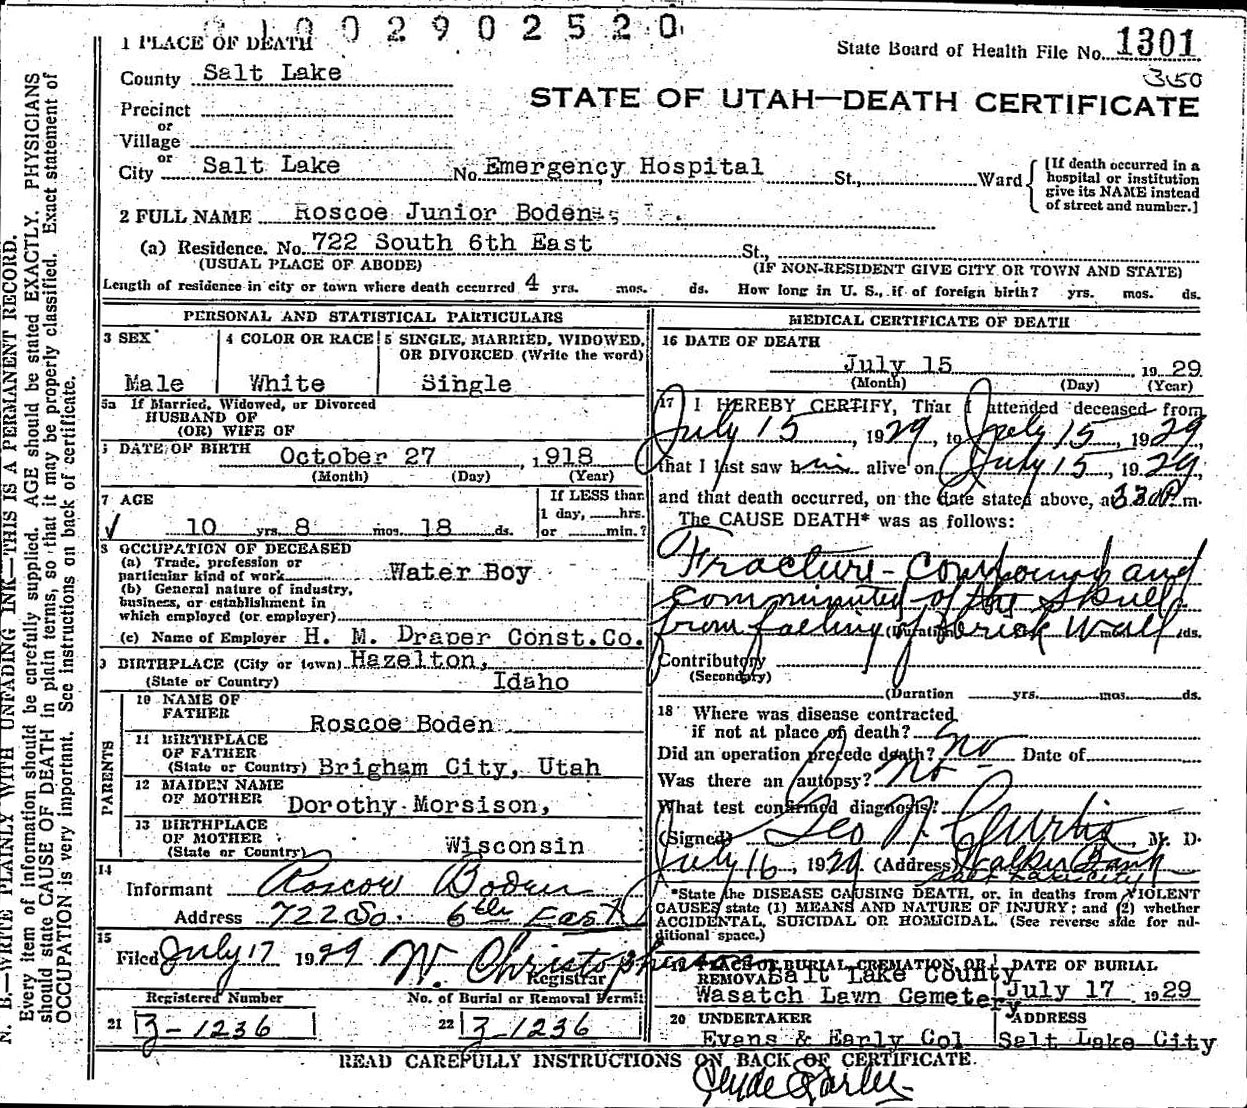 1002902520
1 PLACE OF DEATH
State Board of Health File No. 1301
350
County Salt Lake
STATE OF UTAH—DEATH CERTIFICATE
Precinct
or
Village
or
City Salt Lake No. Emergency Hospital St., Ward
[If death occurred in a hospital or institution give its NAME instead of street and number.]
2 FULL NAME Roscoe Junior Boden
(a) Residence. No. 722 South 6th East St.,
(USUAL PLACE OF ABODE) (IF NON-RESIDENT GIVE CITY OR TOWN AND STATE)
Length of residence in city or town where death occurred 4 yrs. mos. ds. How long in U. S., if of foreign birth? yrs. mos. ds.
PERSONAL AND STATISTICAL PARTICULARS
3 SEX 4 COLOR OR RACE 5 SINGLE, MARRIED, WIDOWED,
OR DIVORCED (Write the word)
Male White Single
5a If Married, Widowed, or Divorced
HUSBAND OF
(OR) WIFE OF
6 DATE OF BIRTH October 27, 1918
(Month) (Day) (Year)
7 AGE If LESS than
1 day, hrs.
10 yrs. 8 mos. 18 ds. or min.?
8 OCCUPATION OF DECEASED
(a) Trade, profession or
particular kind of work Water Boy
(b) General nature of industry,
business, or establishment in
which employed (or employer)
(c) Name of Employer H. M. Draper Const.Co.
9 BIRTHPLACE (City or town) Hazelton,
(State or Country) Idaho
PARENTS
10 NAME OF
FATHER Roscoe Boden
11 BIRTHPLACE
OF FATHER
(State or Country) Brigham City, Utah
12 MAIDEN NAME
OF MOTHER Dorothy Morsison,
13 BIRTHPLACE
OF MOTHER
(State or Country) Wisconsin
14
Informant Roscow Boden
Address 722 So. 6th East
15
Filed July 17 1929 W. Christopherson
Registrar
Registered Number No. of Burial or Removal Permit
21 Z-1236 22 Z-1236
MEDICAL CERTIFICATE OF DEATH
16 DATE OF DEATH
July 15 1929
(Month) (Day) (Year)
17 I HEREBY CERTIFY, That I attended deceased from
July 15, 1929, to July 15, 1929
that I last saw him alive on July 15, 1929
and that death occurred, on the date stated above, at 330 P.m.
The CAUSE DEATH* was as follows:
Fracture-Compound and
comminuted of the Skull
from falling of brick wall
(Duration mos. ds.
Contributory
(Secondary)
(Duration yrs. mos. ds.
18 Where was disease contracted
if not at place of death?
Did an operation precede death? No Date of
Was there an autopsy? No
What test confirmed diagnosis?
(Signed) Geo N. Curtis, M. D.
July 16, 1929 (Address) Walker Bank
Salt Lake City
*State the DISEASE CAUSING DEATH, or, in deaths from VIOLENT
CAUSES state (1) MEANS AND NATURE OF INJURY; and (2) whether
ACCIDENTAL, SUICIDAL OR HOMICIDAL. (See reverse side for ad-
ditional space.)
19 PLACE OF BURIAL, CREMATION, OR DATE OF BURIAL
REMOVAL Salt Lake County
Wasatch Lawn Cemetery July 17 1929
20 UNDERTAKER ADDRESS
Evans & Early Col Salt Lake City
READ CAREFULLY INSTRUCTIONS ON BACK OF CERTIFICATE.
Clyde Earley
N. B.—WRITE PLAINLY WITH UNFADING INK—THIS IS A PERMANENT RECORD.
Every item of information should be carefully supplied. AGE should be stated EXACTLY. PHYSICIANS
should state CAUSE OF DEATH in plain terms, so that it may be properly classified. Exact statement of
OCCUPATION is very important. See instructions on back of certificate.